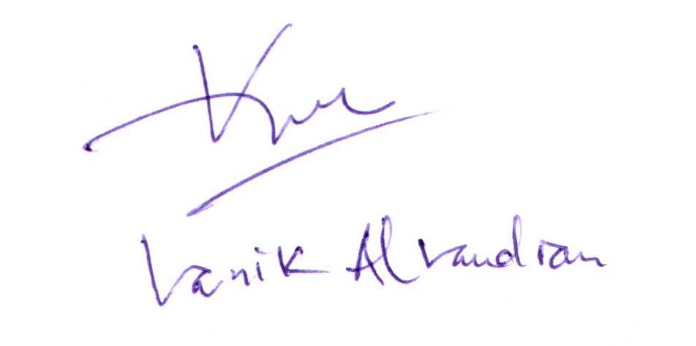 Vanik Alvandian